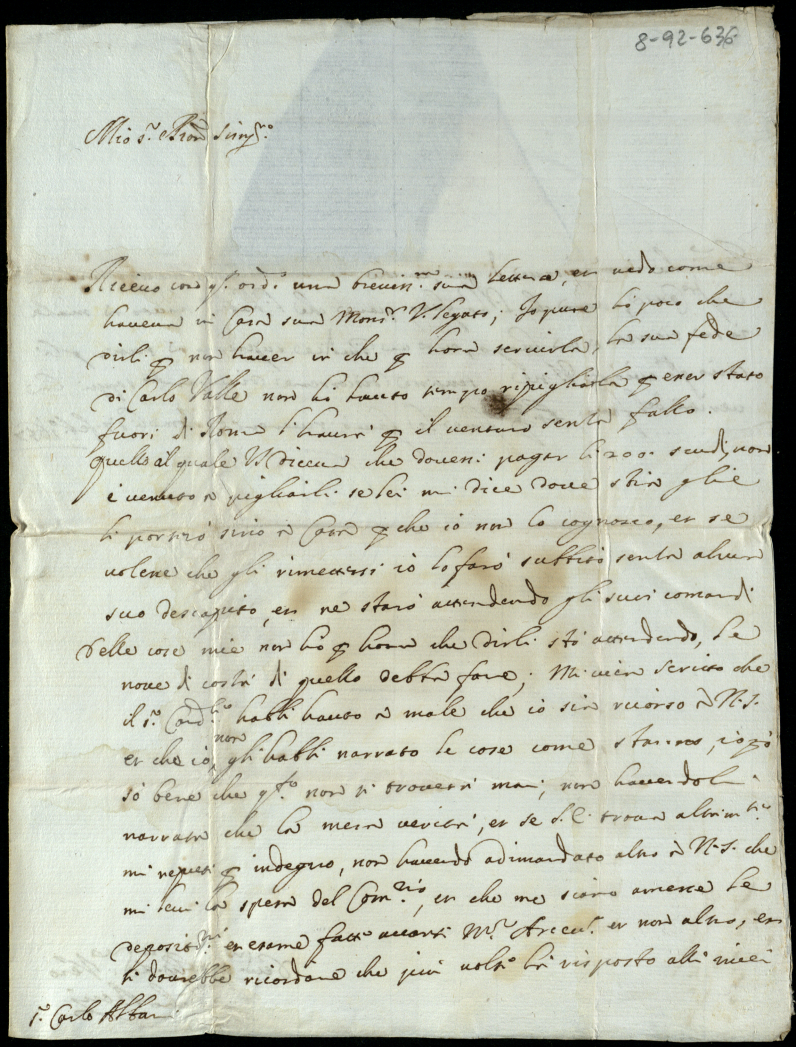 8-92-636
Mio s.r
Ricevo con q.o ord.o una brevis.ma sua lettera, et vedo come
haveva in Casa sua Mons.r V. legato; Io pure ho poco che
dirli p non haver in che p hora servirla, la sua fede
di Carlo Valle non ho hauto tempo ripigliarla p esser stato
fuori di Roma l'haurà p il venturo senza fallo.
quello al quale VS diceva che dovessi pagar li 200. scudi non
è venuto a pigliarli se lei mi dice dove stia glie
li porterò sino a Casa p che io non lo cognosco, et se
volesse che gli rimettessi io lo farò subbito senza alcun
suo descapito, et ne starò attendendo gli suoi comandi
Delle cose mie non ho p hora che dirli stò attendendo, le
nove di costà di quello debba fare; Mi vien scritto che
il s.r Card.le habbi hauto a male che io sia ricorso à N.S.
et che io non gli habbi narrato le cose come stanno, io
so bene che q.to non si troverà mai, non havendoli
narrato che la mera verità, et se S.S. trova altrim.te
mi reputi p indegno, non havendo adimandato altro à N.S. che
mi levi la spesa del Com.rio, et che me siano amesse le
deposit.ni et esame fatti avanti M.r et non altro, et
li dovrebbe ricordare che più volte hà risposto alli miei
s.r Carlo Albani